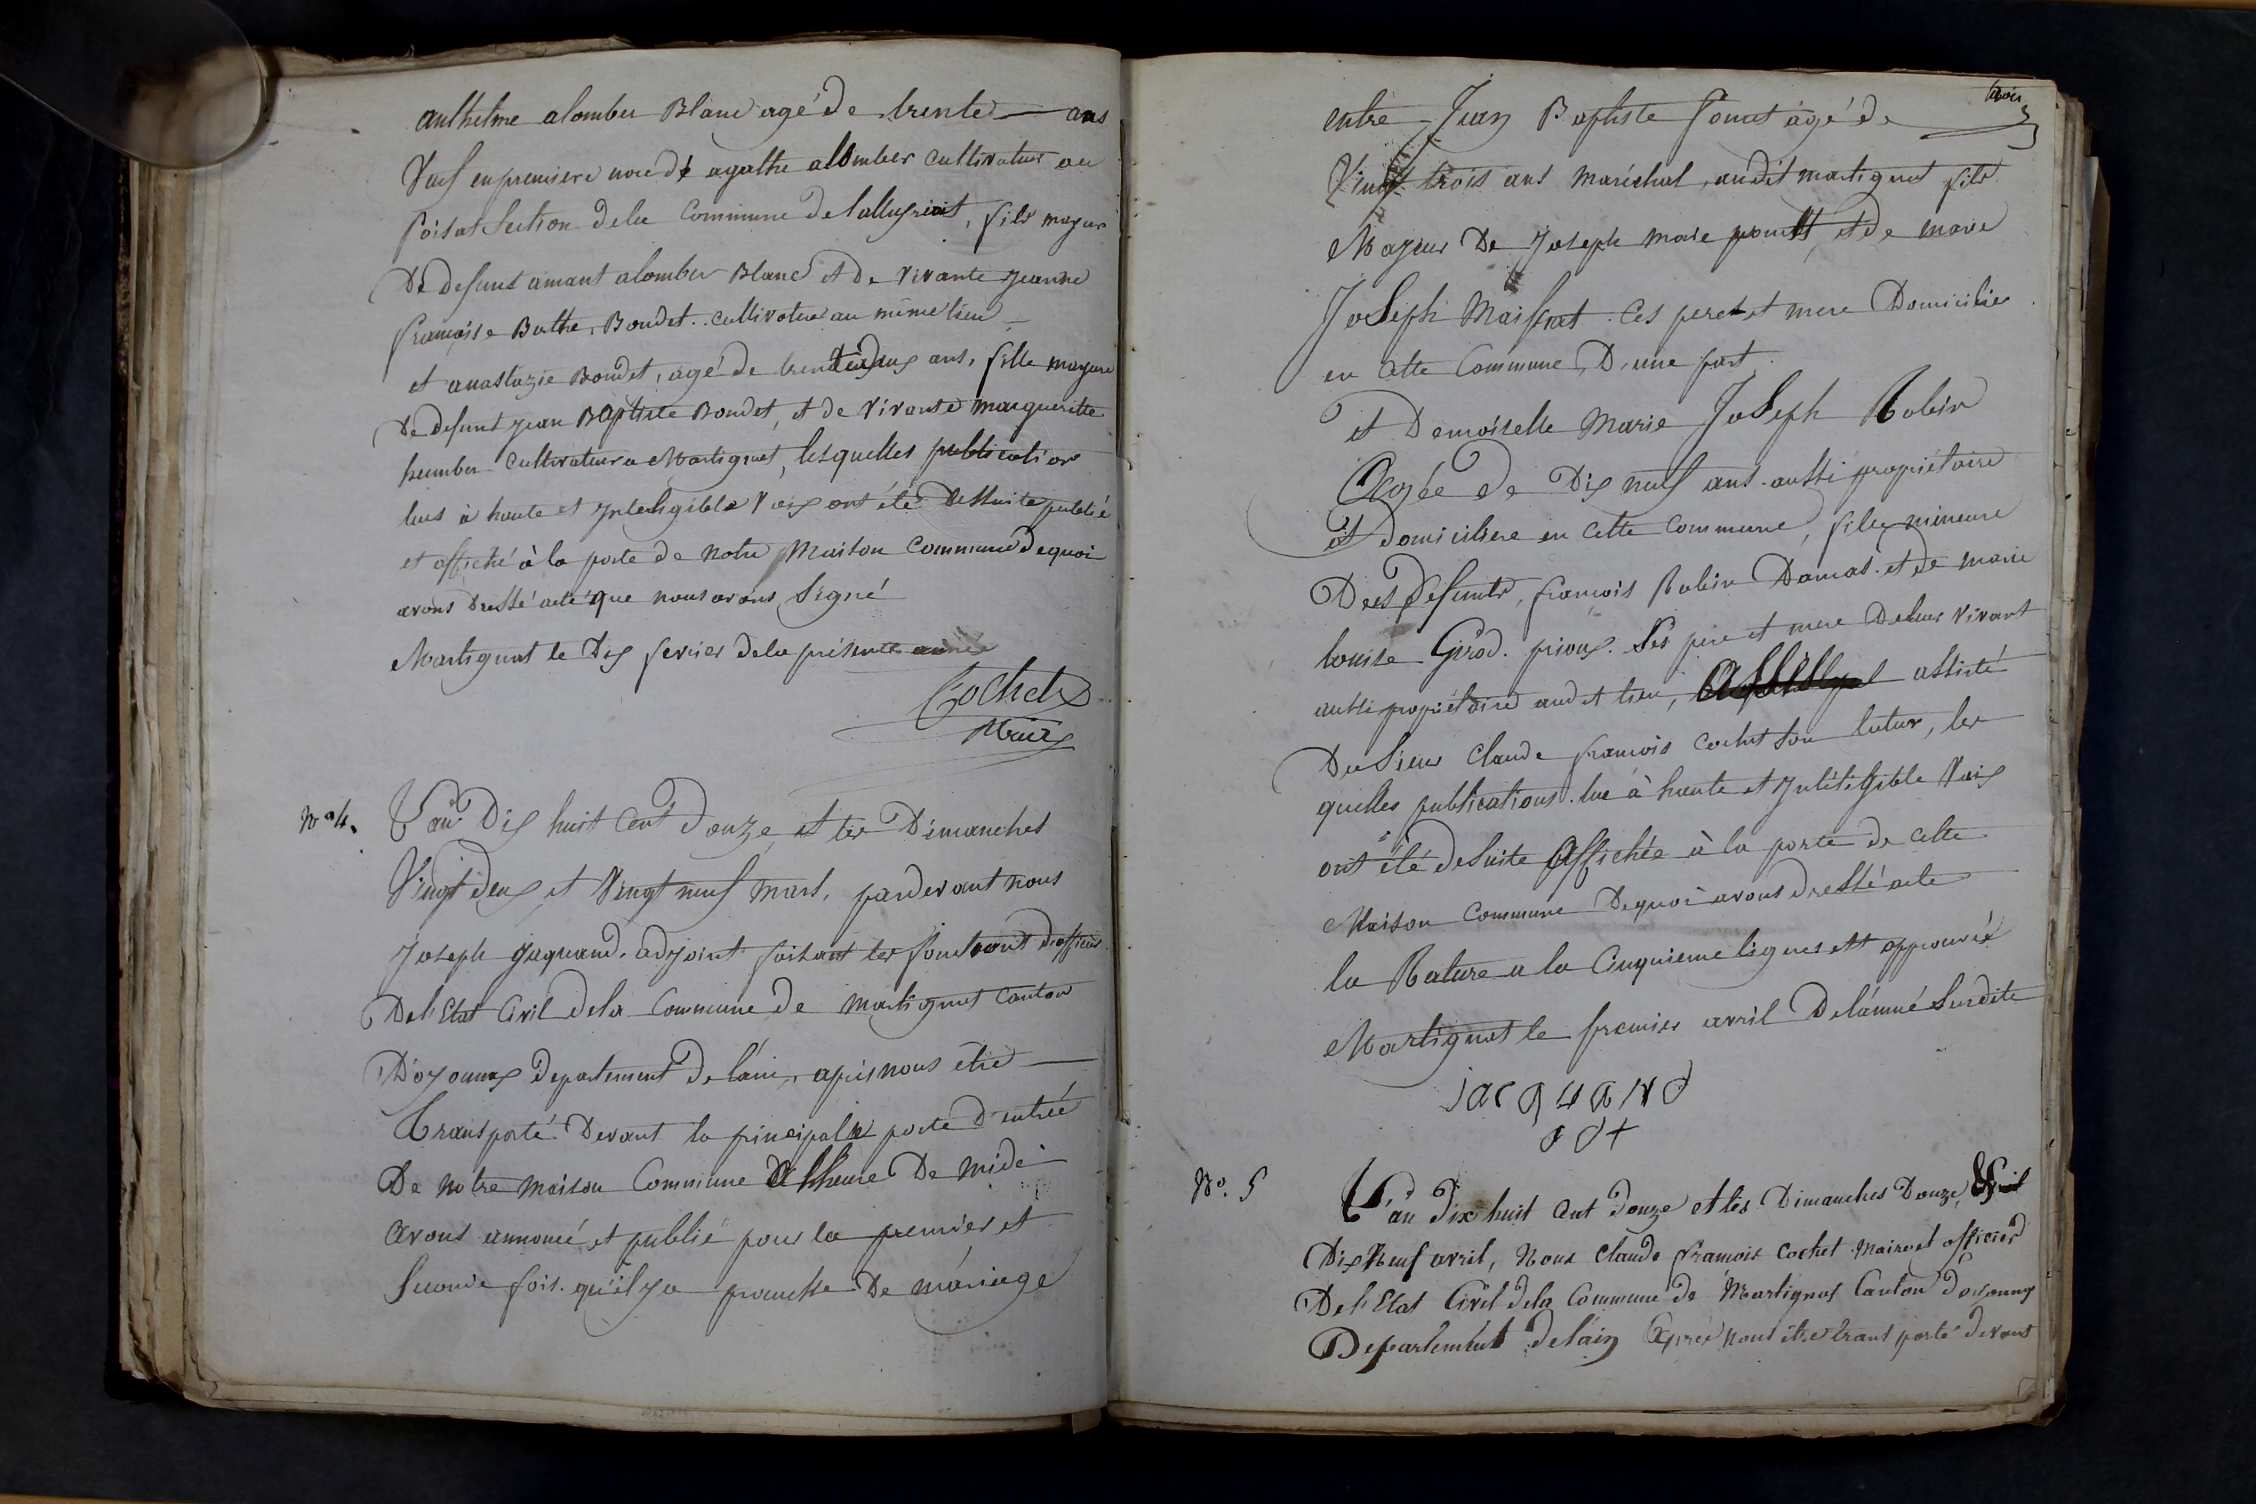 anthelme alomber Blanc agé de trente ans
Veuf en premiere noce de agathe alomber cultivateur au
poisat Section de la Commune de lalleyriat, fils majeur
De defunt amant alomber Blanc et de vivante jeanne
françoise Buthe. Boudet.. cultivateur au même lieu
et anastazie Boudet, agé de trente deux ans, fille majeure
De defunt jean Baptiste Boudet, et de vivante marguerite
humber cultivateur a Martignat, lesquelles publication
lues à haute et Intelligible Voix ont été de Suite publié
et affiché à la porte de notre Maison Commune de quoi
avons dressé acte que nous avons Signé
Martignat le Dix fevrier de la présente année
Cochet
Maire
N° 4.
L'an Dix huit Cent Douze et les Dimanches
Vingt deux et Vingt neuf mars, pardevant nous
Joseph jaquand. adjoint faisant les fonctions d'officier
De l'Etat Civil de la Commune de Martignat Canton
D'oyonnax departement de l'ain, après nous être
Transporté Devant la principale porte D'entrée
De notre maison Commune a l'heure De midi
avons annoncé et publié pour la premier et
Seconde fois. qu'il y a promesse De mariage
trois
entre Jean Baptiste Ponat âgé de
Vingt trois ans maréchal, audit martignat fils
Majeur De Joseph marie ponat, et de marie
Joseph Maissiat. Ces pere et mere Domicilies
en cette Commune, D'une part.
et Demoiselle Marie Joseph Robin
Agée de Dix neuf ans aussi propriétaire
et domiciliere en cette commune, fille mineure
Des Defunts, françois Robin Damas. et de marie
louise Girod. prioux. Ses pere et mere De leur vivant
aussi propriétaire audit lieu, assisté
Du Sieur Claude françois Cochet Son tuteur, les
quelles publications. lue à haute et Intéligible Voix
ont été de Suite Affichée à la porte de cette
Maison Commune De quoi avons dressé acte
la Rature a la Cinquieme lignes est approuvée
Martignat le premier avril De l'anné Susdite
jacquand
adt
N°. 5
L'an Dix huit Cent Douze et les Dimanches Douze, &
Dix Neuf avril, Nous Claude François Cochet Maire et officier
De l'Etat Civil de la Commune de Martignat Canton d'oyonnax
Departement de l'ain Après nous être transporté devant